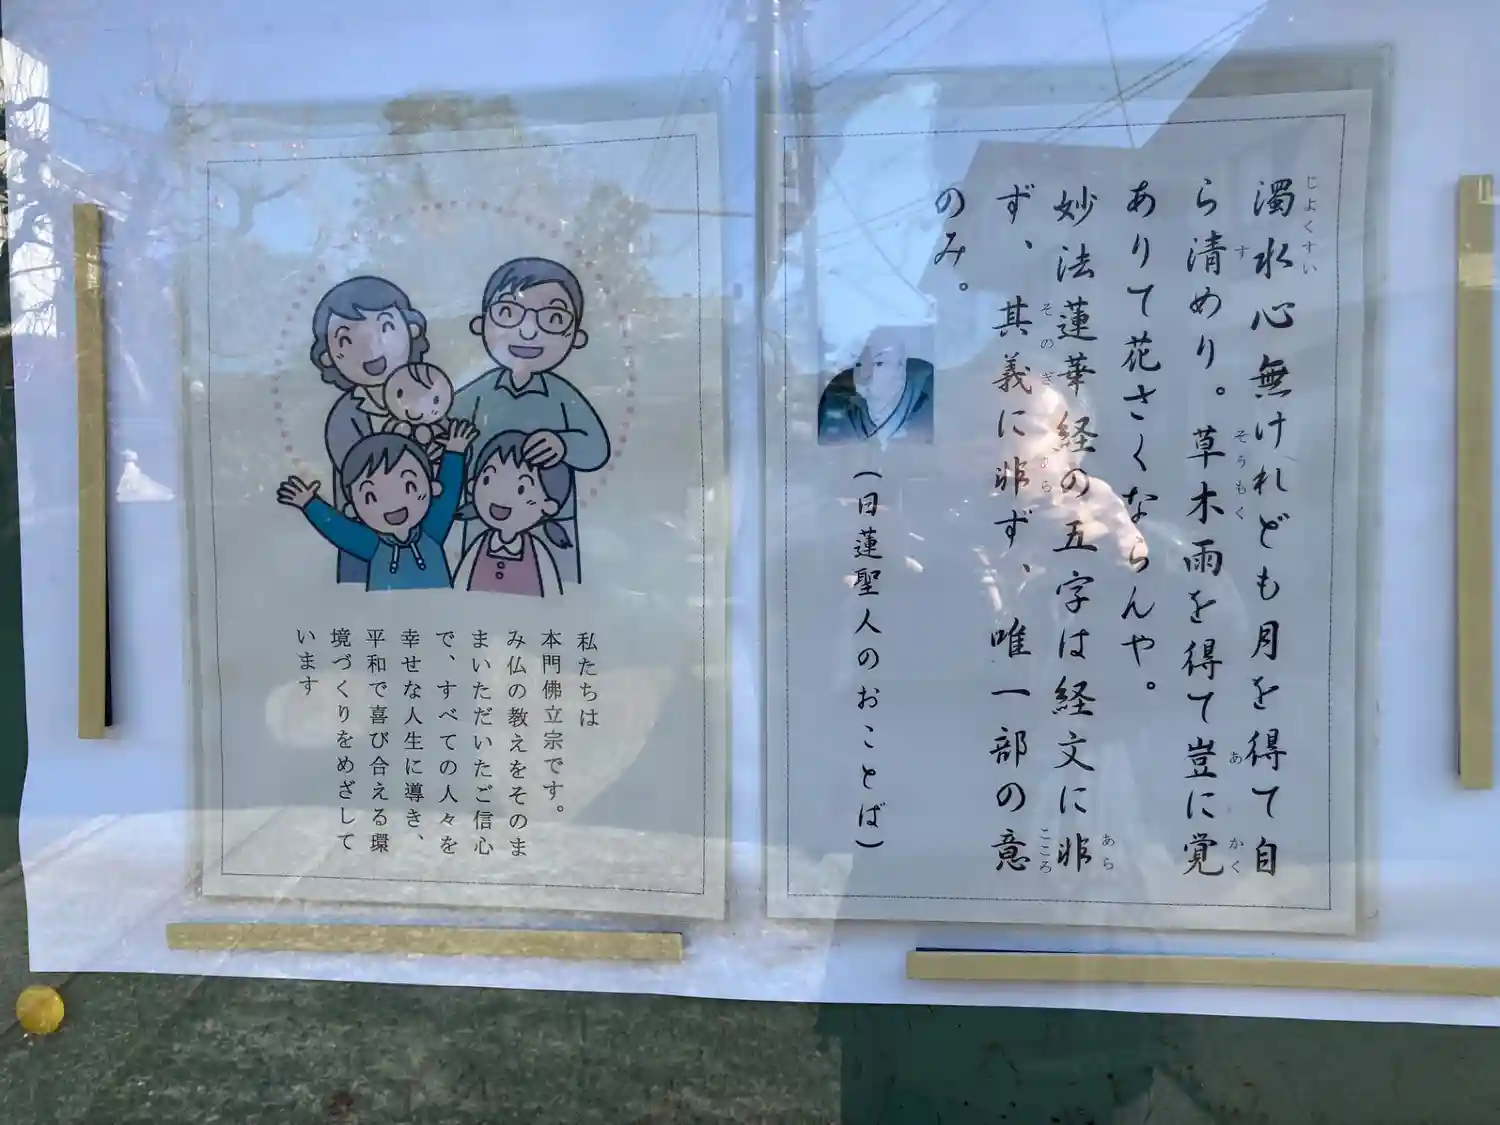 濁水心無けれども月を得て自
じよくすい
ら清めり。草木雨を得て豈に覚
す そうもく あ かく
ありて花さくならんや。
妙法蓮華経の五字は経文に非
あら
ず、其義に非ず、唯一部の意
その ぎ あら こころ
のみ。
(日蓮聖人のおことば)
私たちは
本門佛立宗です。
み仏の教えをそのま
まいただいたご信心
で、すべての人々を
幸せな人生に導き、
平和で喜び合える環
境づくりをめざして
います